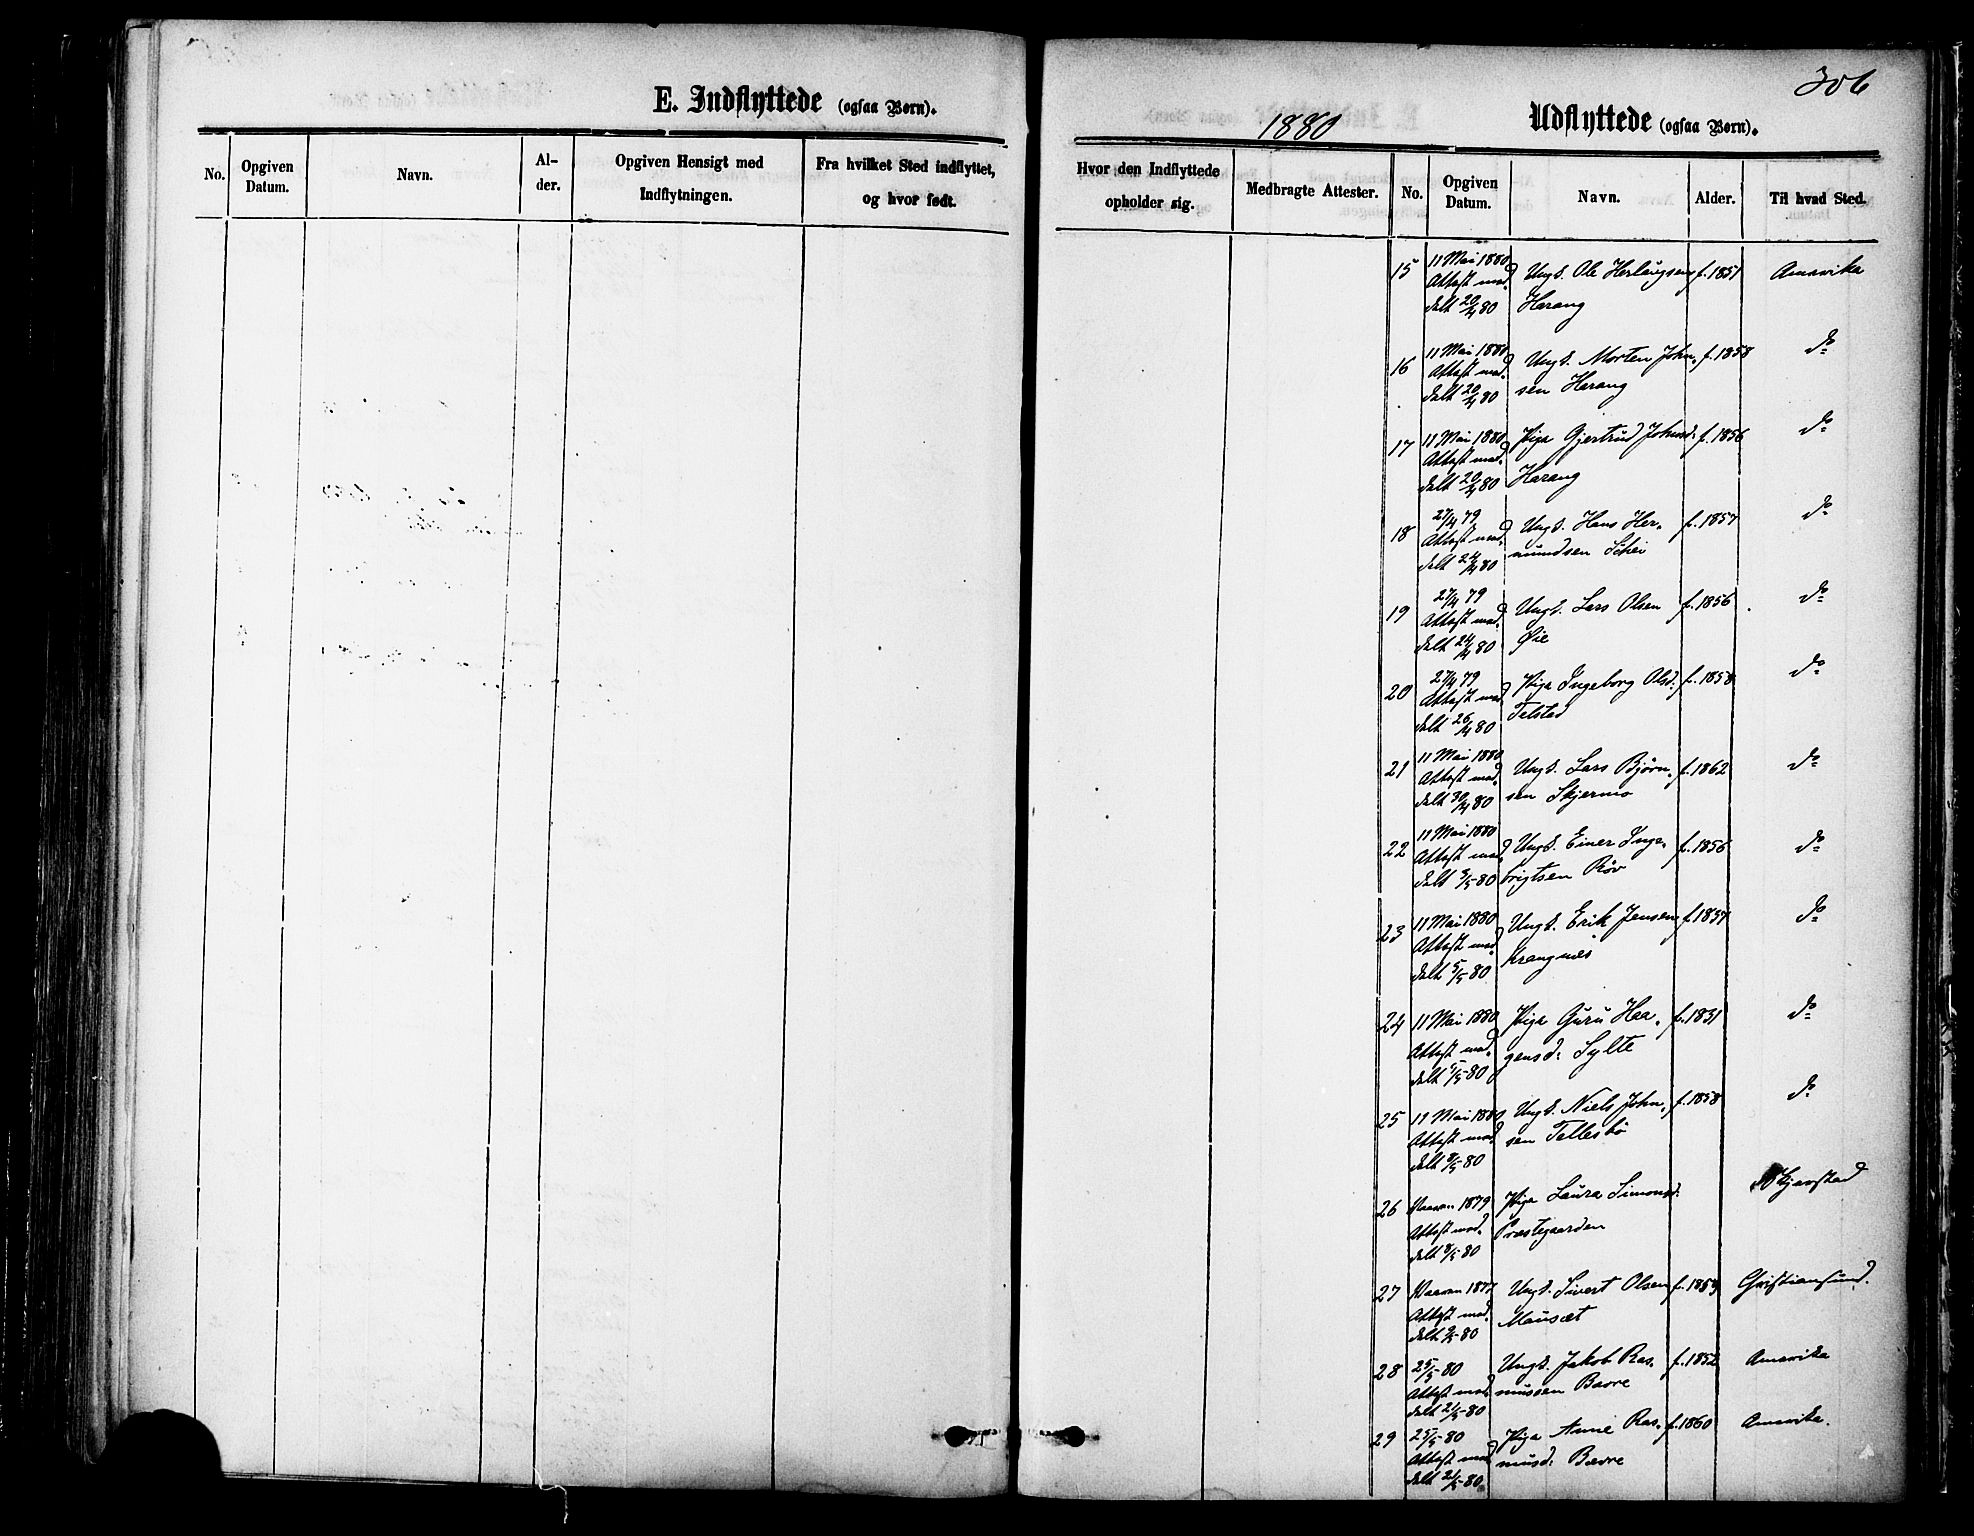 306
E. Indflyttede (ogsaa Børn).
1880
Udflyttede (ogsaa Børn).
No.
Opgiven Datum.
Navn.
Al-
der.
Opgiven Hensigt med
Indflytningen.
Fra hvilket Sted indflyttet,
og hvor født.
Hvor den Indflyttede
opholder sig.
Medbragte Attester.
No.
Opgiven Datum.
Navn.
Alder.
Til hvad Sted.
15 11 Mai 1880 Ungk. Ole Herlaugsen f. 1851 Amerika
Attest med-
delt 20/4 80 Harang
16 11 Mai 1880 Ungk. Morten John- f. 1858 do
Attest med-
delt 20/4 80 sen Harang
17 11 Mai 1880 Pige Gjertrud Johnsd: f. 1856 do
Attest med-
delt 20/4 80 Harang
18 27/4 79 Ungk. Hans Her- f. 1857 do
Attest med- mundsen Schei
delt 24/4 80
19 27/4 79 Ungk. Lars Olsen f. 1856 do
Attest med- Øie
delt 24/4 80
20 27/4 79 Pige Ingeborg Olsd: f. 1858 do
Attest med- Telstad
delt 26/4 80
21 11 Mai 1880 Ungk. Lars Bjørn- f. 1862 do
Attest med-
delt 30/4 80 sen Skjermo
22 11 Mai 1880 Ungk. Einer Inge- f. 1856 do
Attest med-
delt 3/5 80 brigtsen Røv
23 11 Mai 1880 Ungk. Erik Jensen f. 1857 do
Attest med-
delt 5/5 80 Krangnæs
24 11 Mai 1880 Pige Guru Haa- f. 1831 do
Attest med- gensd: Sylte
delt 5/5 80
25 11 Mai 1880 Ungk. Niels John- f. 1858 do
Attest med- sen Tellesbø
delt 8/5 80
26 Vaaren 1879 Pige Laura Simonsd: Skjerstad
Attest med- Præstegaarden
delt 8/5 80
27 Vaaren 1877 Ungk. Sivert Olsen f. 1859 Christiansund.
Attest med- Mausæt
delt 9/5 80
28 25/5 80 Ungk. Jakob Ras- f. 1852 Amerika
Attest med- mussen Bævre
delt 21/5 80
29 25/5 80 Pige Anne Ras- f. 1860 Amerika.
Attest med- musd: Bævre
delt 21/5 80